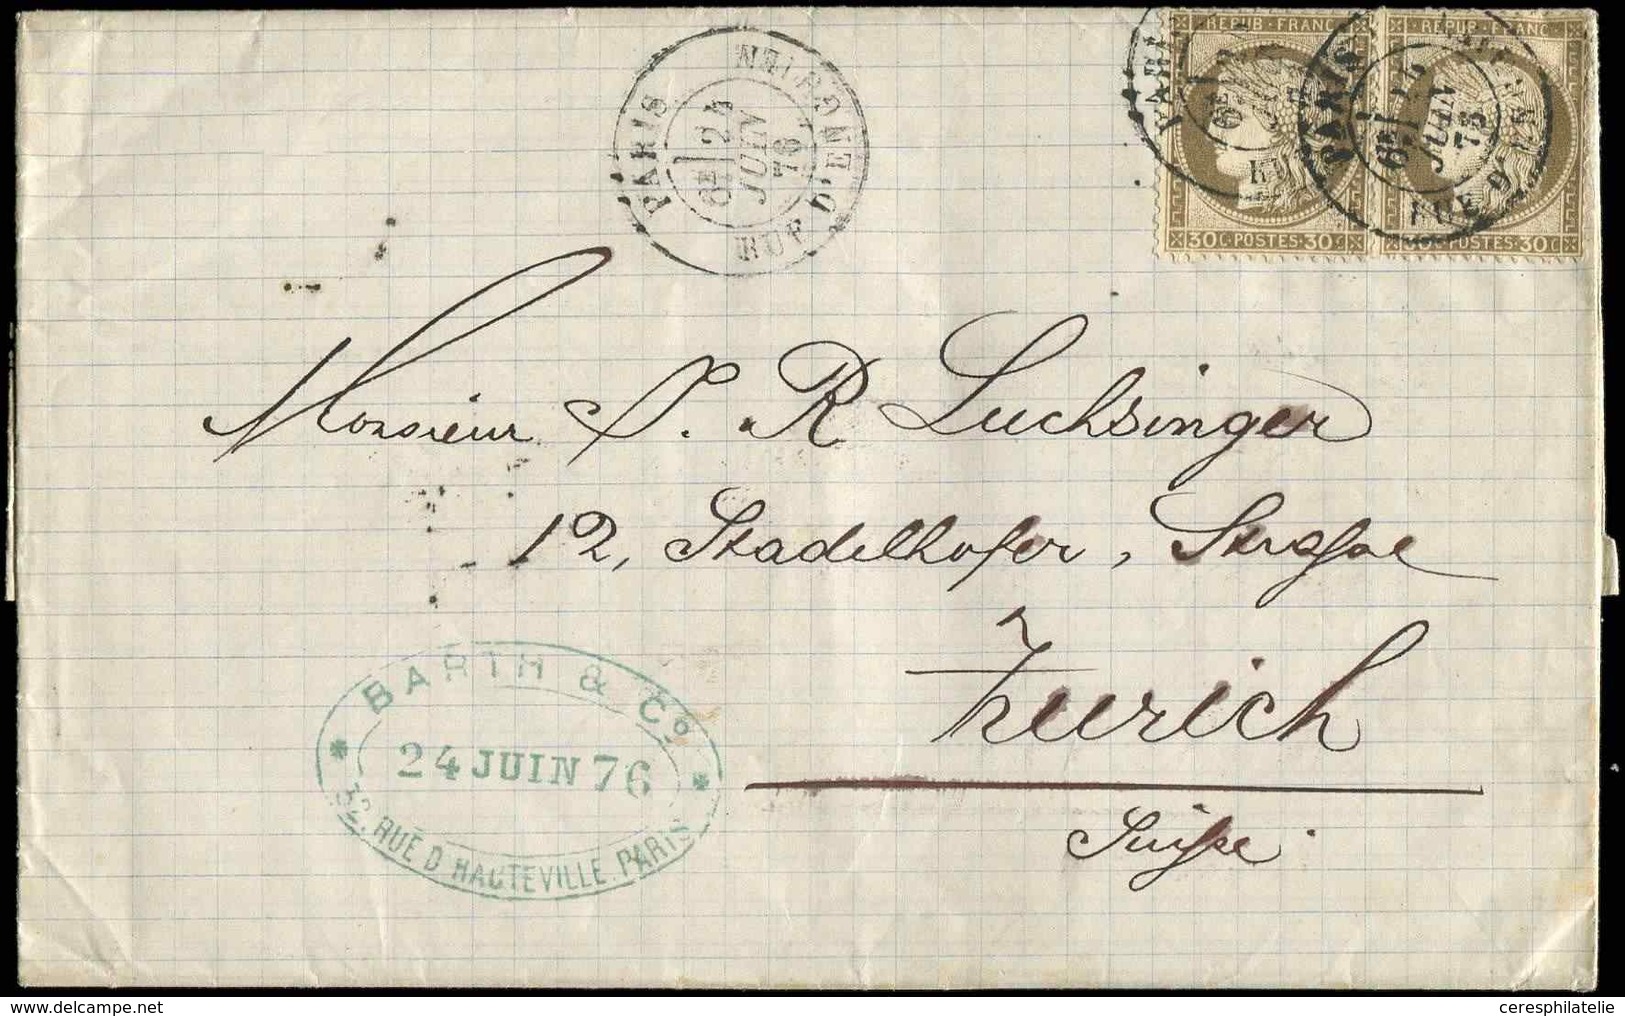 REPUB·FRANC
REPUB·FRANC
30 C. POSTES 30 C.
POSTES 30 C.
PARIS
6E 24
JUIN
76
RUE D'ENGHIEN
PARIS
6E 24
JUIN
76
RUE D'
Monsieur J. R Luchsinger
12, Stadelhofer, Strasse
Zurich
Suisse
BARTH & Cº
24 JUIN 76
RUE D HAUTEVILLE. PARIS
delcampe.net
ceresphilatelie